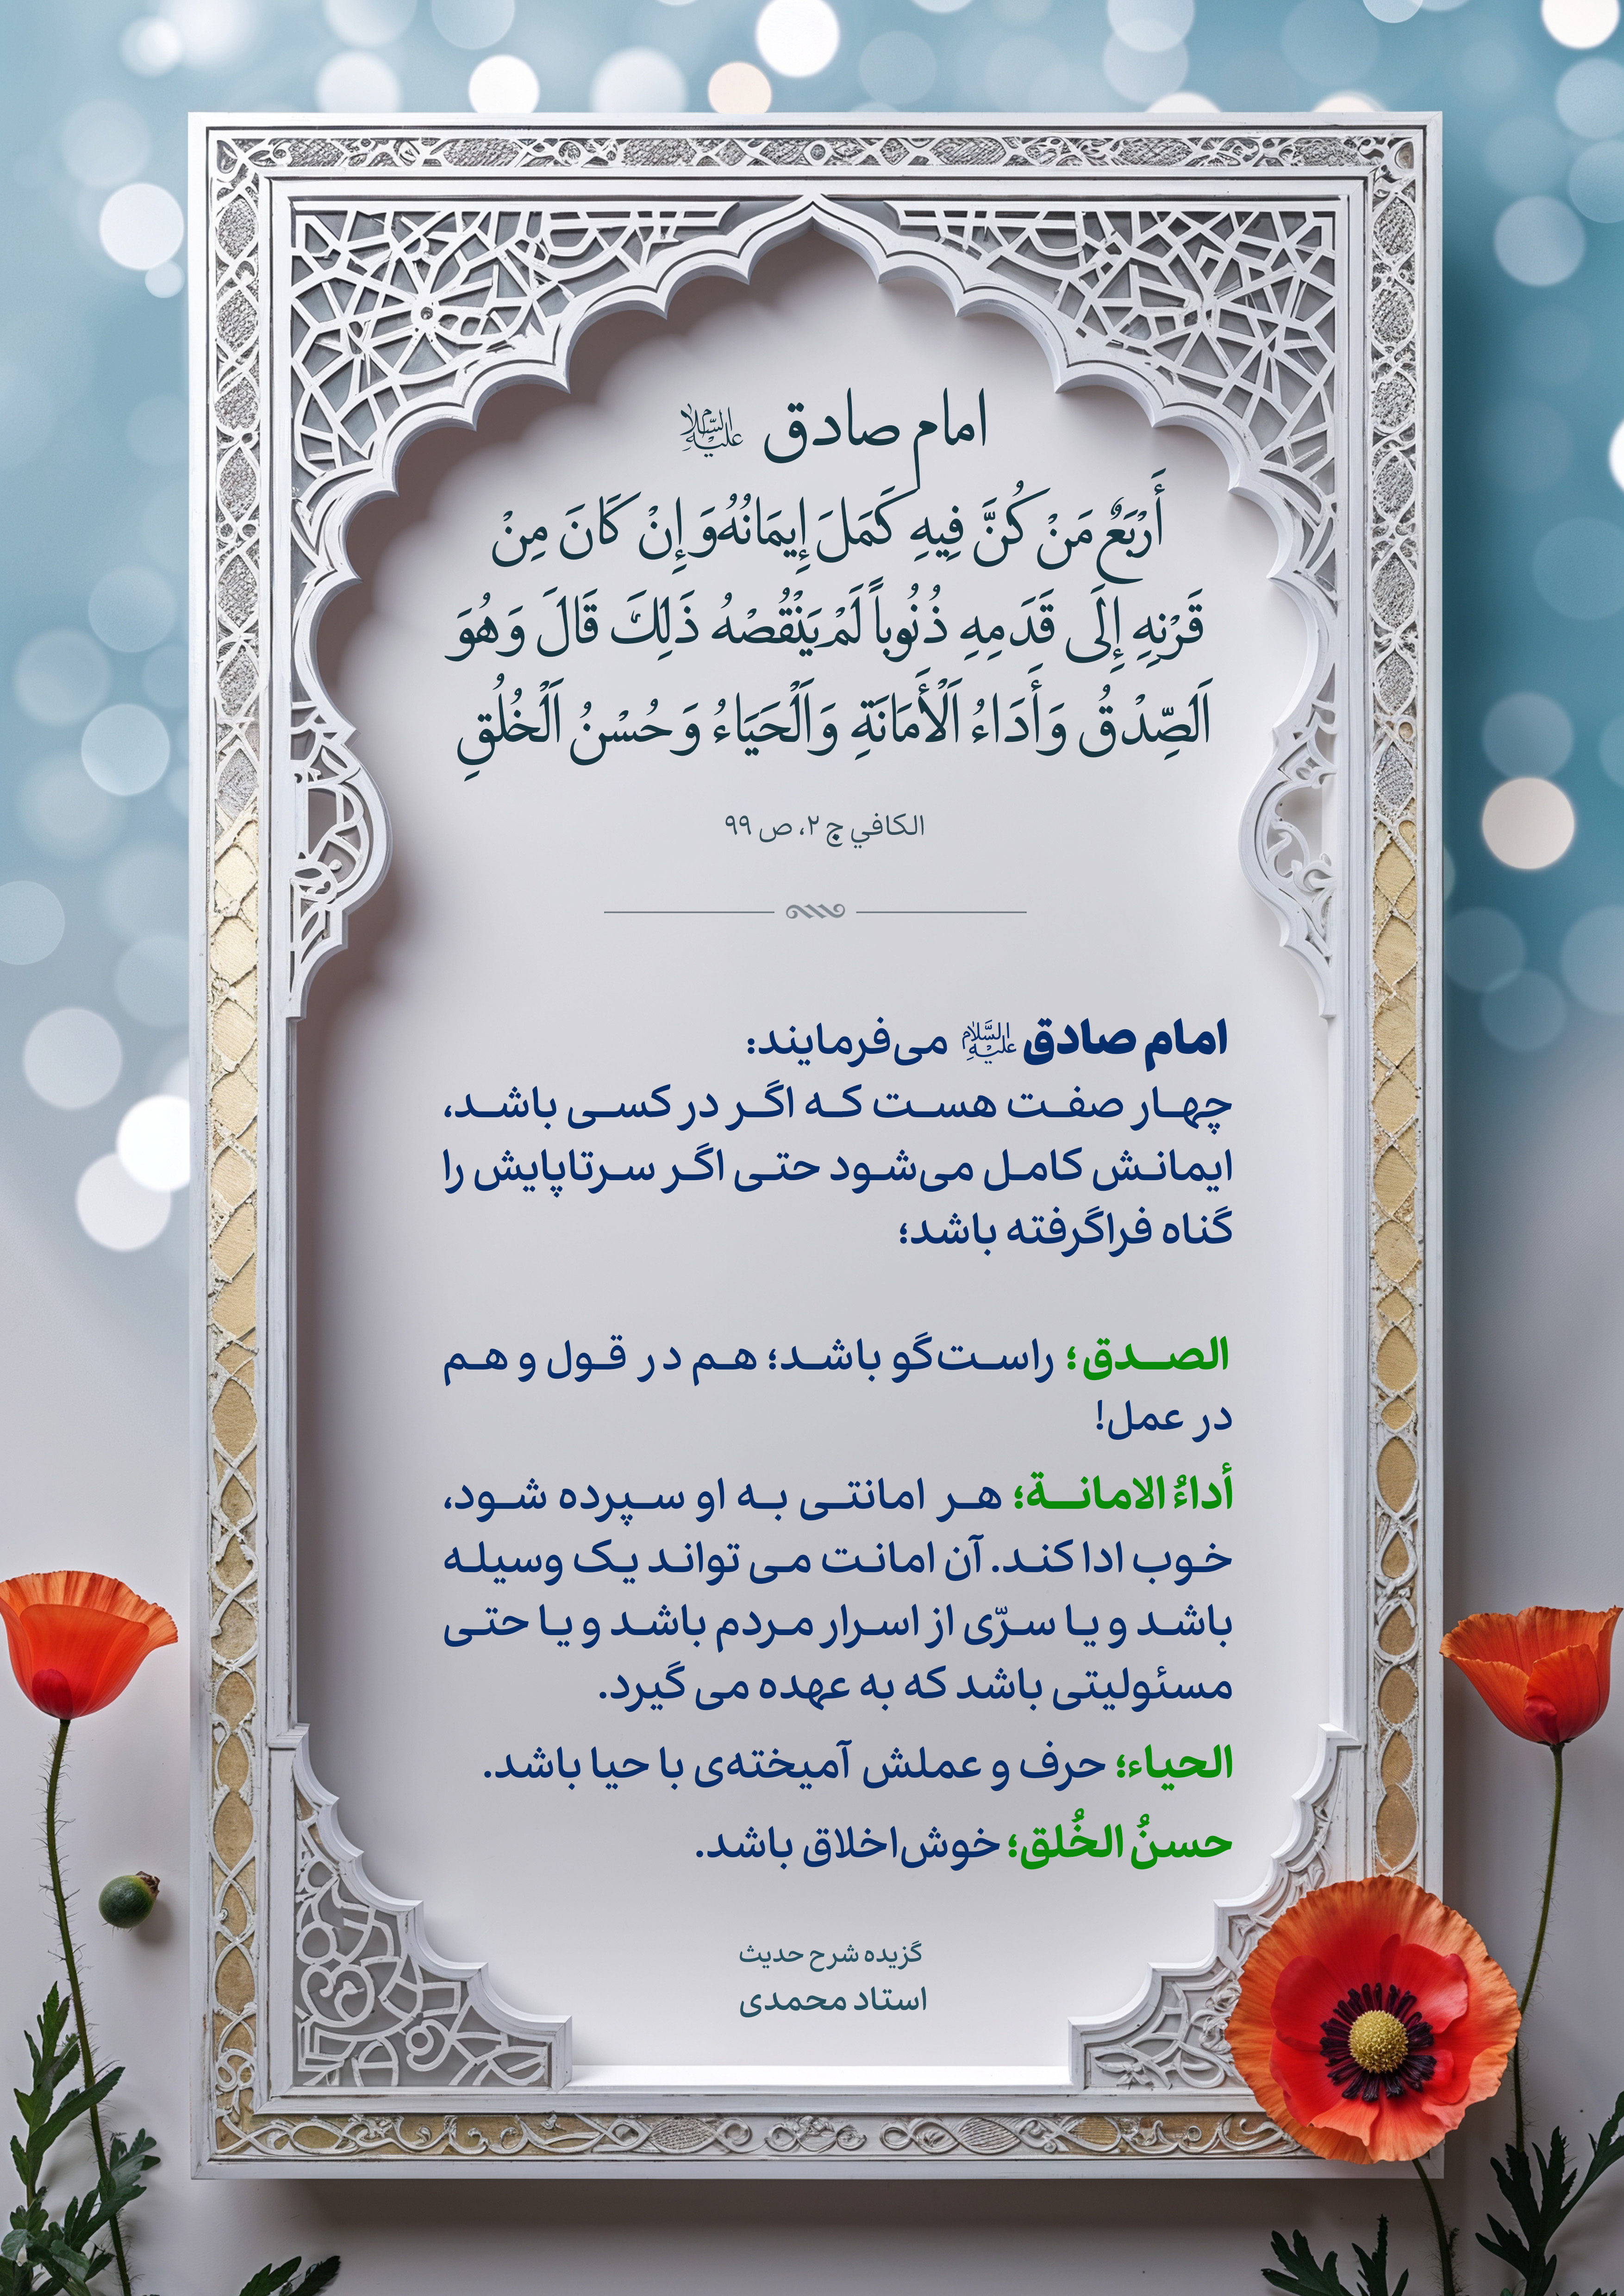 امام صادق علیه السلام
أَرْبَعٌ مَنْ كُنَّ فِيهِ كَمَلَ إِيمَانُهُ وَ إِنْ كَانَ مِنْ
قَرْنِهِ إِلَى قَدَمِهِ ذُنُوباً لَمْ يَنْقُصْهُ ذَلِكَ قَالَ وَ هُوَ
اَلصِّدْقُ وَ أَدَاءُ اَلْأَمَانَةِ وَ اَلْحَيَاءُ وَ حُسْنُ اَلْخُلُقِ
الكافي ج ۲، ص ۹۹
امام صادق علیه السلام می‌فرمایند:
چهار صفت هست که اگر در کسی باشد،
ایمانش کامل می‌شود حتی اگر سرتاپایش را
گناه فراگرفته باشد؛
الصدق؛ راست‌گو باشد؛ هم در قول و هم
در عمل!
أداءُ الامانة؛ هر امانتی به او سپرده شود،
خوب ادا کند. آن امانت می تواند یک وسیله
باشد و یا سرّی از اسرار مردم باشد و یا حتی
مسئولیتی باشد که به عهده می گیرد.
الحیاء؛ حرف و عملش آمیخته‌ی با حیا باشد.
حسنُ الخُلق؛ خوش‌اخلاق باشد.
گزیده شرح حدیث
استاد محمدی